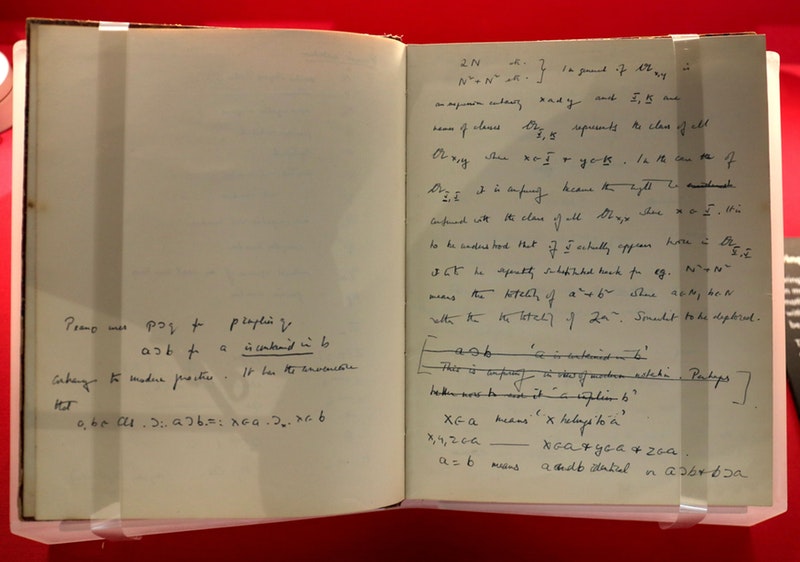 Peano uses p⊃q for p implies q
a⊃b for a is contained in b
contrary to modern practice. It has the inconvenience
that
a, b ∈ Cls .⊃:. a⊃b.=: x∈a .⊃ₓ. x∈b
2N etc.
N²+N² etc. } In general if 𝔄x,y is
an expression containing x and y and Ξ, K are
names of classes 𝔄Ξ,K represents the class of all
𝔄x,y where x∈Ξ & y∈K. In the case of
𝔄Ξ,Ξ it is confusing because this might be
confused with the class of all 𝔄x,x where x∈Ξ. It is
to be understood that if Ξ actually appears twice in 𝔄Ξ,Ξ
be separately substituted for eg. N²+N²
means the totality of a²+b² where a∈N, b∈N
rather than the totality of 2a². Somewhat to be deplored.
[ a⊃b 'a is contained in b'
This is confusing in view of modern notation. Perhaps
better now to read it 'a implies b' ]
x∈a means 'x belongs to a'
x,y,z∈a —— x∈a & y∈a & z∈a.
a = b means a and b identical or a⊃b & b⊃a